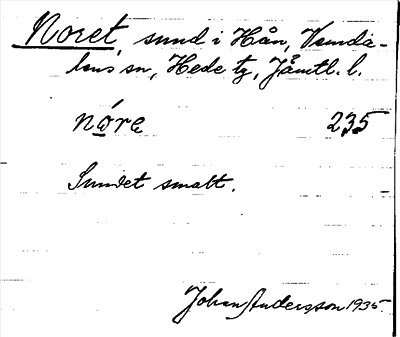 Noret, sund i Hån, Vemda-
lens sn, Hede tg, Jämtl. l.
nóre 235
Sundet smalt.
Johan Andersson 1935